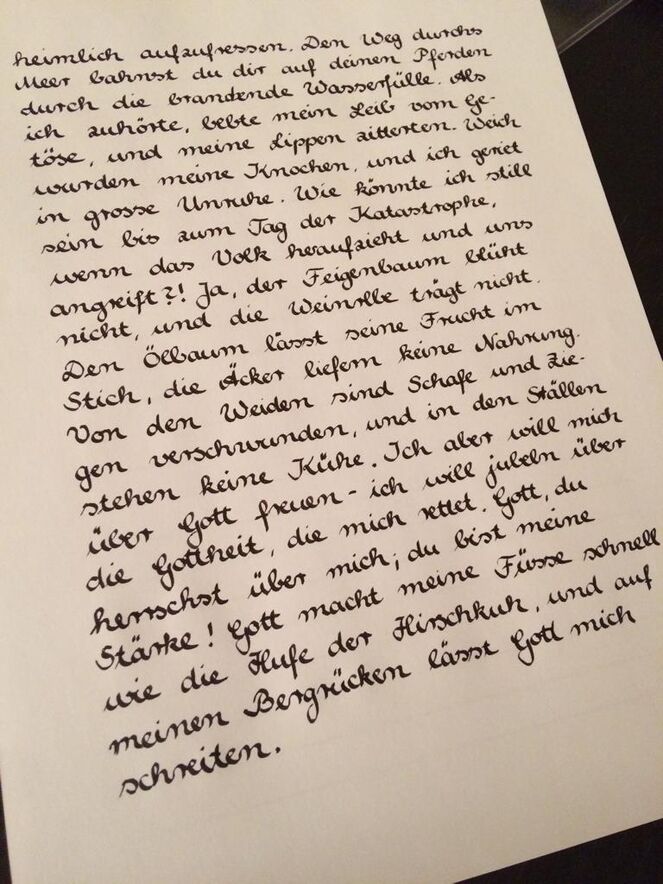 heimlich aufzufressen. Den Weg durchs
Meer bahnst du dir auf deinen Pferden
durch die brandende Wasserfülle. Als
ich zuhörte, bebte mein Leib vom Ge-
töse, und meine Lippen zitterten. Weich
wurden meine Knochen, und ich geriet
in grosse Unruhe. Wie könnte ich still
sein bis zum Tag der Katastrophe,
wenn das Volk heraufzieht und uns
angreift?! Ja, der Feigenbaum blüht
nicht, und die Weinrebe trägt nicht.
Den Ölbaum lässt seine Frucht im
Stich, die Äcker liefern keine Nahrung.
Von den Weiden sind Schafe und Zie-
gen verschwunden, und in den Ställen
stehen keine Kühe. Ich aber will mich
über Gott freuen - ich will jubeln über
die Gottheit, die mich rettet. Gott, du
herrschst über mich; du bist meine
Stärke! Gott macht meine Füsse schnell
wie die Hufe der Hirschkuh, und auf
meinen Bergrücken lässt Gott mich
schreiten.